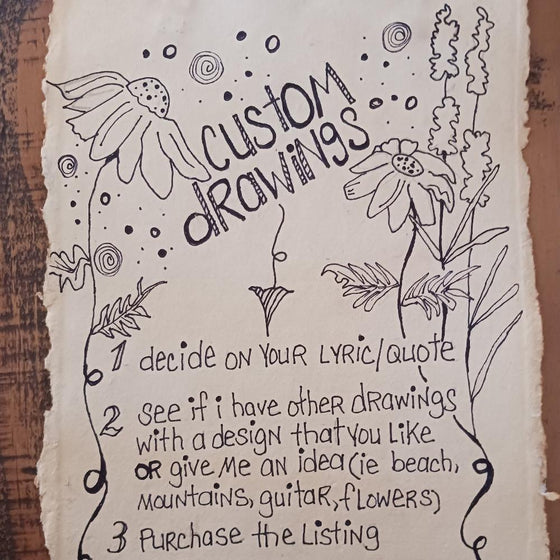 custom
drawings
1 decide on your lyric/quote
2 see if i have other drawings
with a design that you like
OR give me an idea (ie beach,
mountains, guitar, flowers)
3 Purchase the Listing